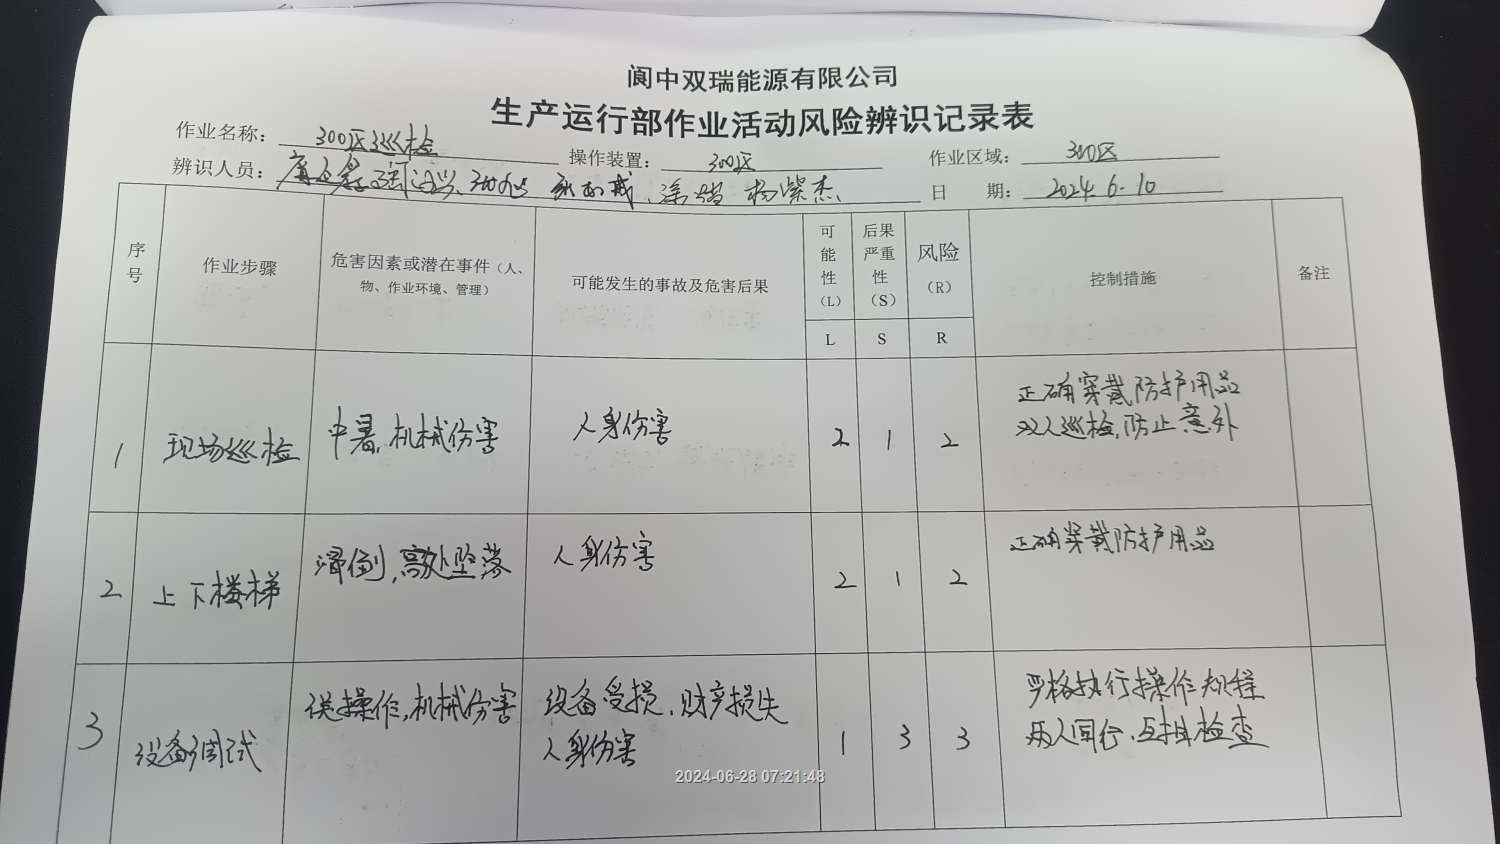 阆中双瑞能源有限公司
生产运行部作业活动风险辨识记录表
作业名称： 300区巡检 操作装置： 300区 作业区域： 300区
辨识人员： 杨紫杰 日 期： 2024.6.10
序号 作业步骤 危害因素或潜在事件（人、物、作业环境、管理） 可能发生的事故及危害后果 可能性（L） 后果严重性（S） 风险（R） 控制措施 备注
L S R
1 现场巡检 中暑，机械伤害 人身伤害 2 1 2 正确穿戴防护用品
双人巡检，防止意外
2 上下楼梯 滑倒，高处坠落 人身伤害 2 1 2 正确穿戴防护用品
3 设备调试 误操作，机械伤害 设备受损，财产损失 1 3 3 严格执行操作规程
人身伤害 两人同行，互相检查
2024-06-28 07:21:48